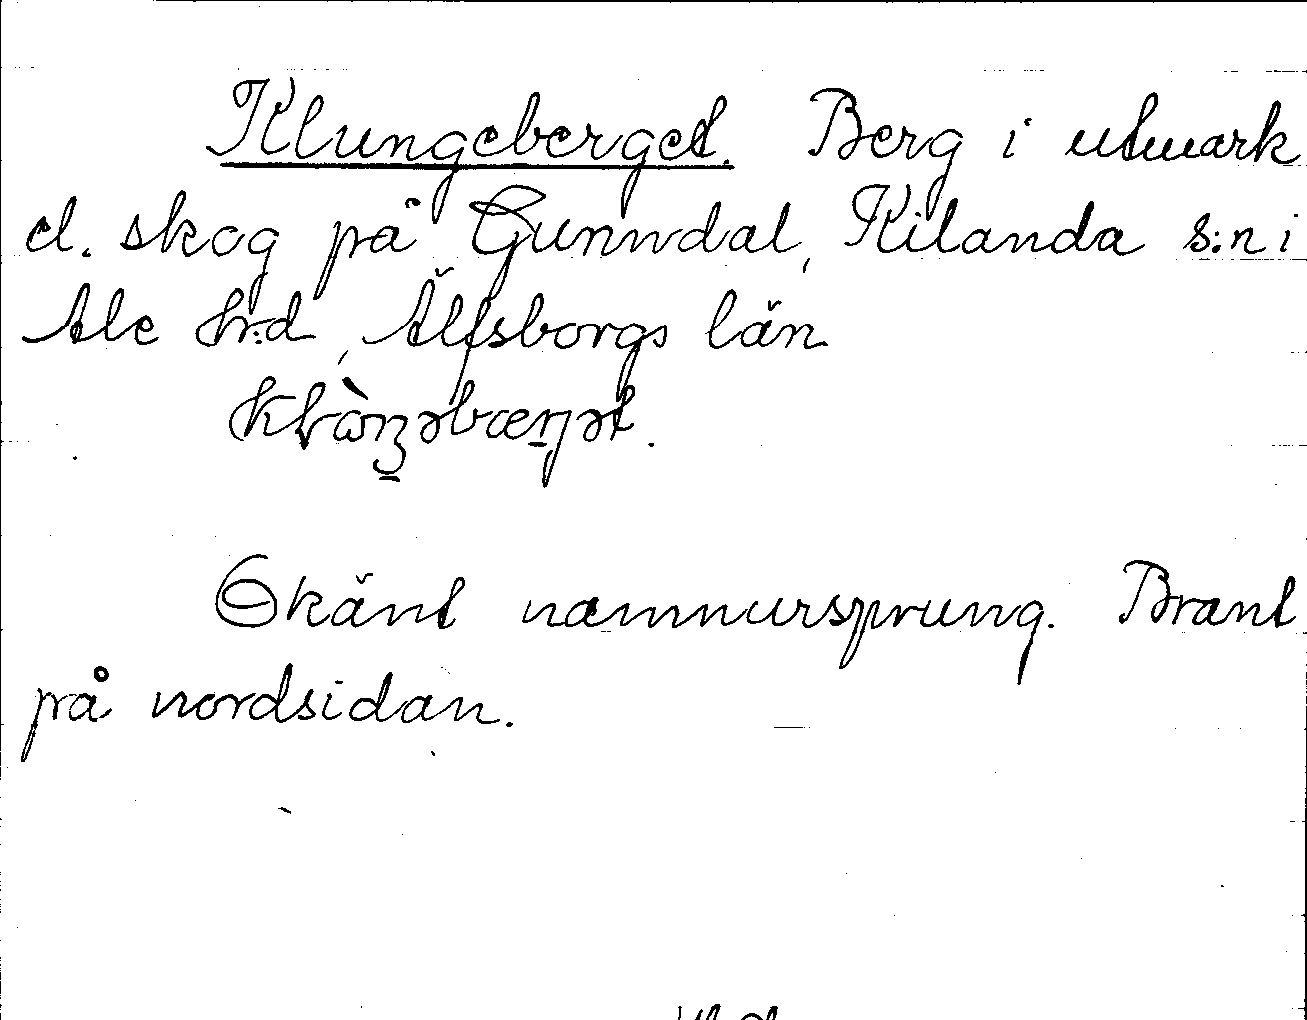 Klungeberget. Berg i utmark
el. skog på Gunndal, Kilanda s:n i
Ale hrd, Älfsborgs län
Okänt namnursprung. Brant
på nordsidan.